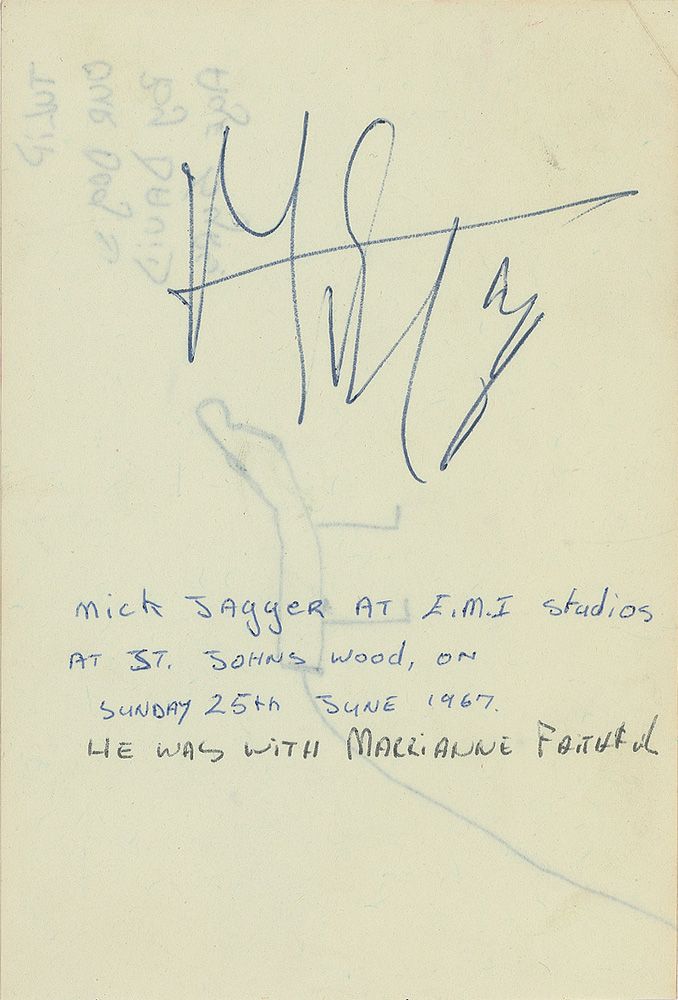 mick JAggeR AT E.M.I studios
AT ST. JOHNS WOOD, ON
SUNDAY 25th JUNE 1967.
HE WAS WITH MARRIANNE FAITHFUL